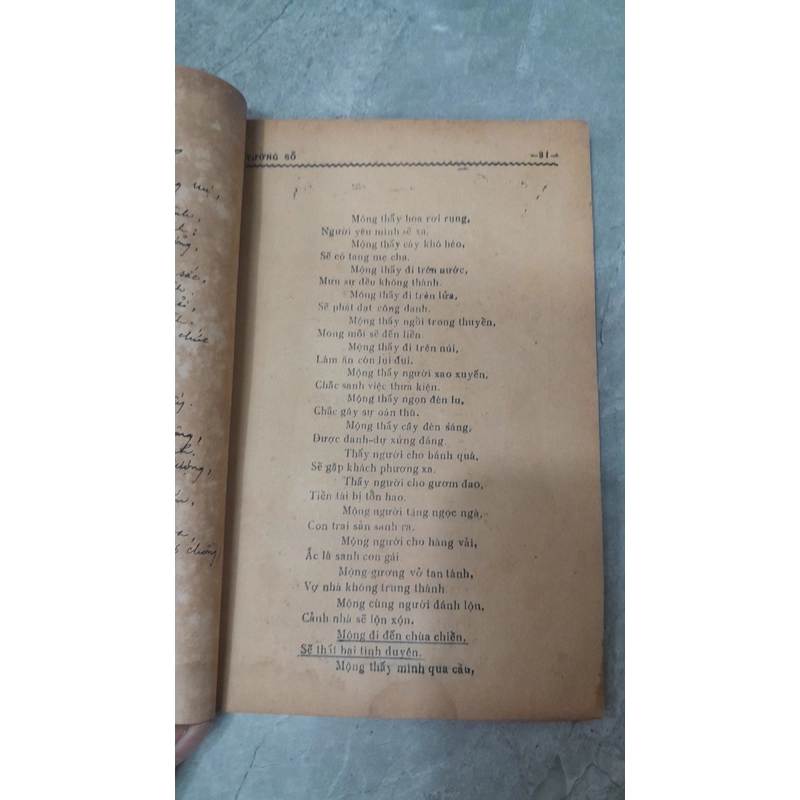 TƯỚNG SỐ —81—
Mộng thấy hoa rơi rụng,
Người yêu mình sẽ xa.
Mộng thấy cây khô héo,
Sẽ có tang mẹ cha.
Mộng thấy đi trên nước,
Mưu sự đều không thành.
Mộng thấy đi trên lửa,
Sẽ phát đạt công danh.
Mộng thấy ngồi trong thuyền,
Mong mỏi sẽ đến liền.
Mộng thấy đi trên núi,
Làm ăn còn lui đui.
Mộng thấy người xao xuyến,
Chắc sanh việc thưa kiện.
Mộng thấy ngọn đèn lu,
Chắc gây sự oán thù.
Mộng thấy cây đèn sáng,
Được danh-dự xứng đáng.
Thấy người cho bánh quà,
Sẽ gặp khách phương xa.
Thấy người cho gươm đao,
Tiền tài bị tổn hao.
Mộng người tặng ngọc ngà,
Con trai sản sanh ra.
Mộng người cho hàng vải,
Ắc là sanh con gái.
Mộng gương vở tan tành,
Vợ nhà không trung thành
Mộng cùng người đánh lộn,
Cảnh nhà sẽ lộn xộn.
Mộng đi đến chùa chiền,
Sẽ thất bại tình duyên.
Mộng thấy mình qua cầu,